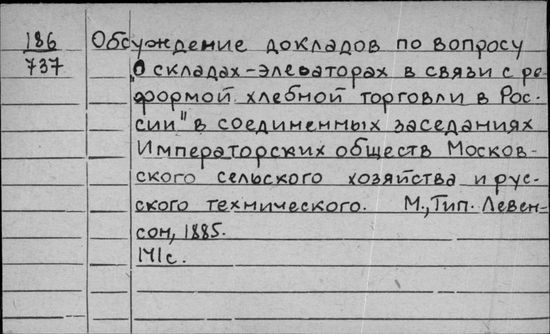 186
737
Обсуждение докладов по вопросу
"О складах-элеваторах в связи с ре-
формой хлебной торговли в Рос-
сии" в соединенных заседаниях
Императорских обществ Москов-
ского сельского хозяйства и рус-
ского технического. М., Тип. Левен-
сон, 1885.
141с.